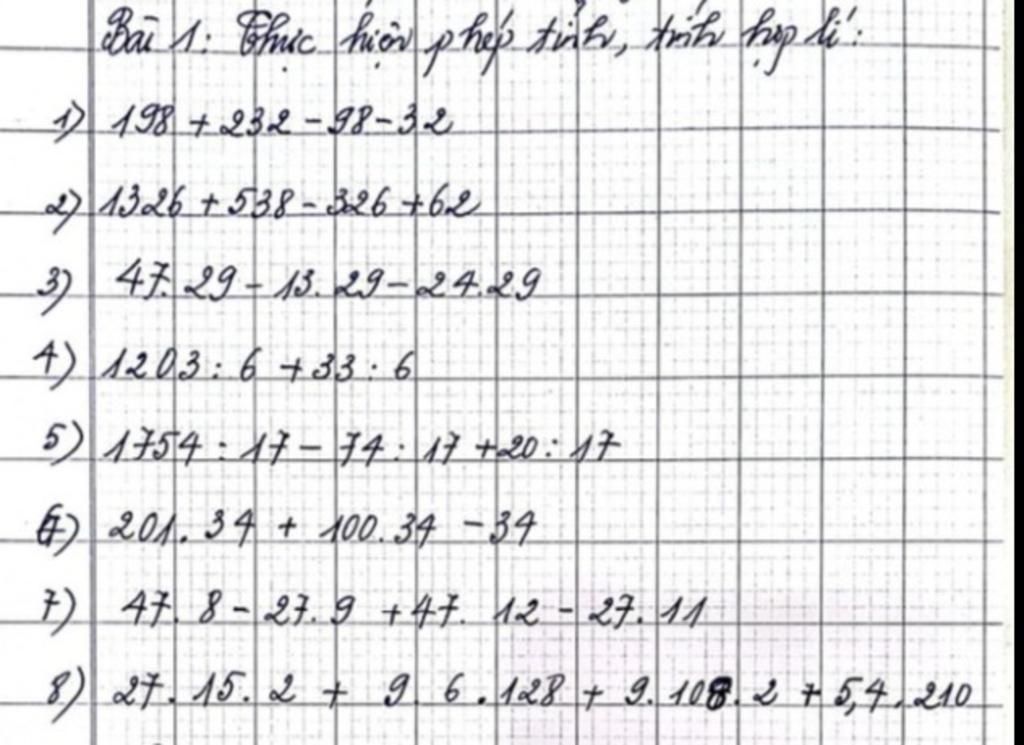 Bài 1: Thực hiện phép tính, tính hợp lí:
1) 198 + 232 - 98 - 32
2) 1326 + 538 - 326 + 62
3) 47. 29 - 13. 29 - 24. 29
4) 1203 : 6 + 33 : 6
5) 1754 : 17 - 74 : 17 + 20 : 17
6) 201. 34 + 100. 34 - 34
7) 47. 8 - 27. 9 + 47. 12 - 27. 11
8) 27. 15. 2 + 9. 6. 128 + 9. 108. 2 + 5,4. 210